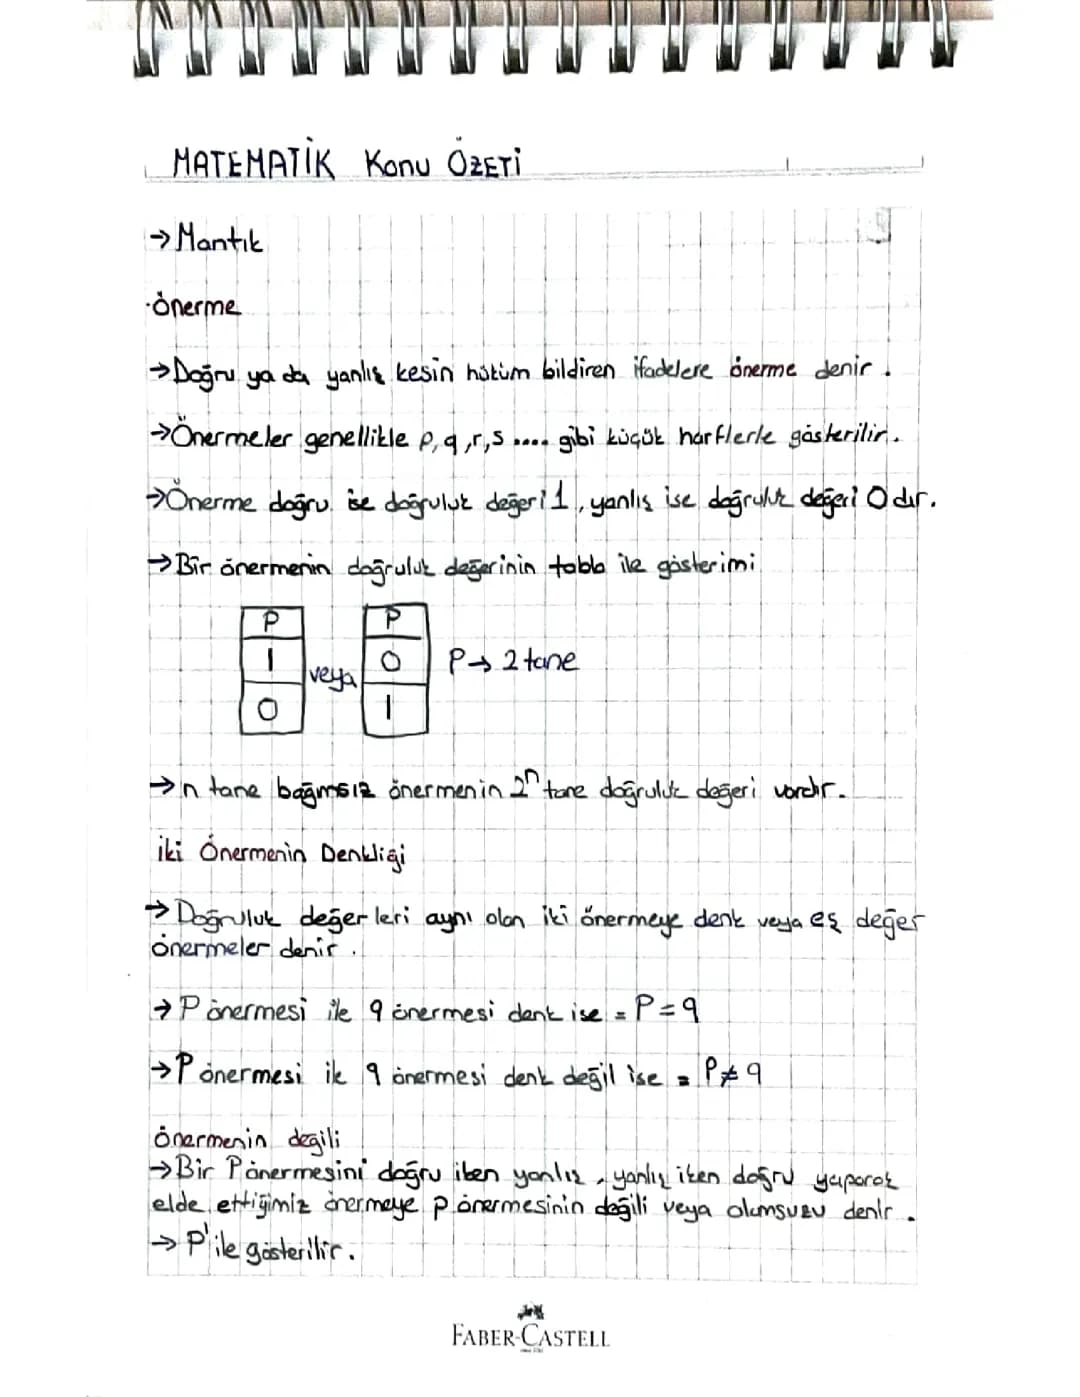 MATEMATİK Konu ÖZETİ
→ Mantık
·önerme
→Doğru ya da yanlış kesin hüküm bildiren ifadelere önerme denir.
→Önermeler genellikle p,q,r,s .... gibi küçük harflerle gösterilir.
→Önerme doğru ise doğruluk değeri 1, yanlış ise doğruluk değeri 0 dır.
→Bir önermenin doğruluk değerinin tablo ile gösterimi
P P
1 veya 0 P→ 2 tane
0 1
→n tane bağımsız önermenin 2ⁿ tane doğruluk değeri vardır.
iki Önermenin Denkliği
→ Doğruluk değerleri aynı olan iki önermeye denk veya eş değer
önermeler denir.
→ P önermesi ile q önermesi denk ise = P=q
→P önermesi ile q önermesi denk değil ise = P≠q
önermenin değili
→Bir P önermesini doğru iken yanlış, yanlış iken doğru yaparak
elde ettiğimiz önermeye p önermesinin değili veya olumsuzu denir.
→ P' ile gösterilir.
FABER-CASTELL